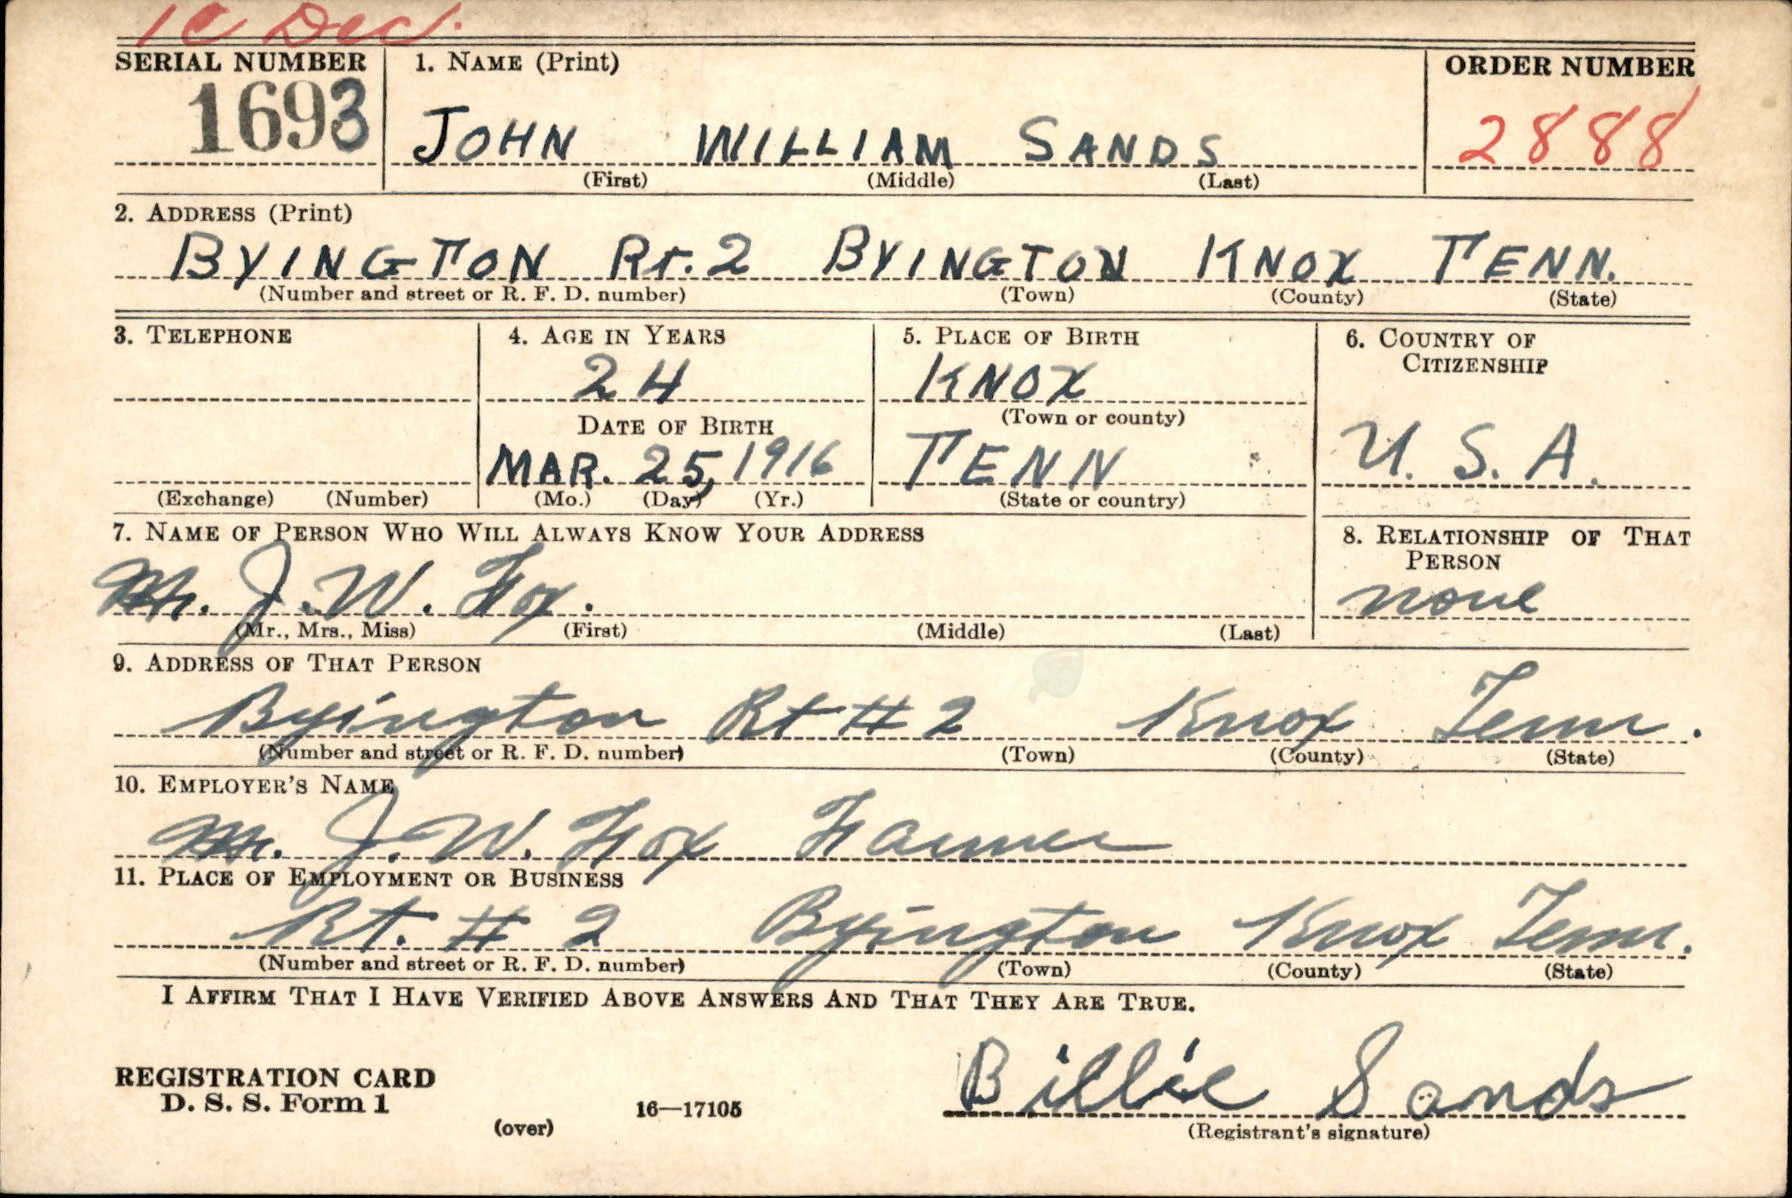 1C Dec.
SERIAL NUMBER 1. NAME (Print) ORDER NUMBER
1693 JOHN WILLIAM SANDS 2888
(First) (Middle) (Last)
2. ADDRESS (Print)
BYINGTON Rt. 2 BYINGTON KNOX TENN.
(Number and street or R. F. D. number) (Town) (County) (State)
3. TELEPHONE 4. AGE IN YEARS 5. PLACE OF BIRTH 6. COUNTRY OF
CITIZENSHIP
24 KNOX
(Town or county)
DATE OF BIRTH
MAR. 25, 1916 TENN U. S. A.
(Exchange) (Number) (Mo.) (Day) (Yr.) (State or country)
7. NAME OF PERSON WHO WILL ALWAYS KNOW YOUR ADDRESS 8. RELATIONSHIP OF THAT
PERSON
Mr. J. W. Fox. none
(Mr., Mrs., Miss) (First) (Middle) (Last)
9. ADDRESS OF THAT PERSON
Byington Rt # 2 Knox Tenn.
(Number and street or R. F. D. number) (Town) (County) (State)
10. EMPLOYER'S NAME
Mr. J. W. Fox Farmer
11. PLACE OF EMPLOYMENT OR BUSINESS
Rt. # 2 Byington Knox Tenn.
(Number and street or R. F. D. number) (Town) (County) (State)
I AFFIRM THAT I HAVE VERIFIED ABOVE ANSWERS AND THAT THEY ARE TRUE.
REGISTRATION CARD
D. S. S. Form 1 Billie Sands
(over) 16—17105 (Registrant's signature)